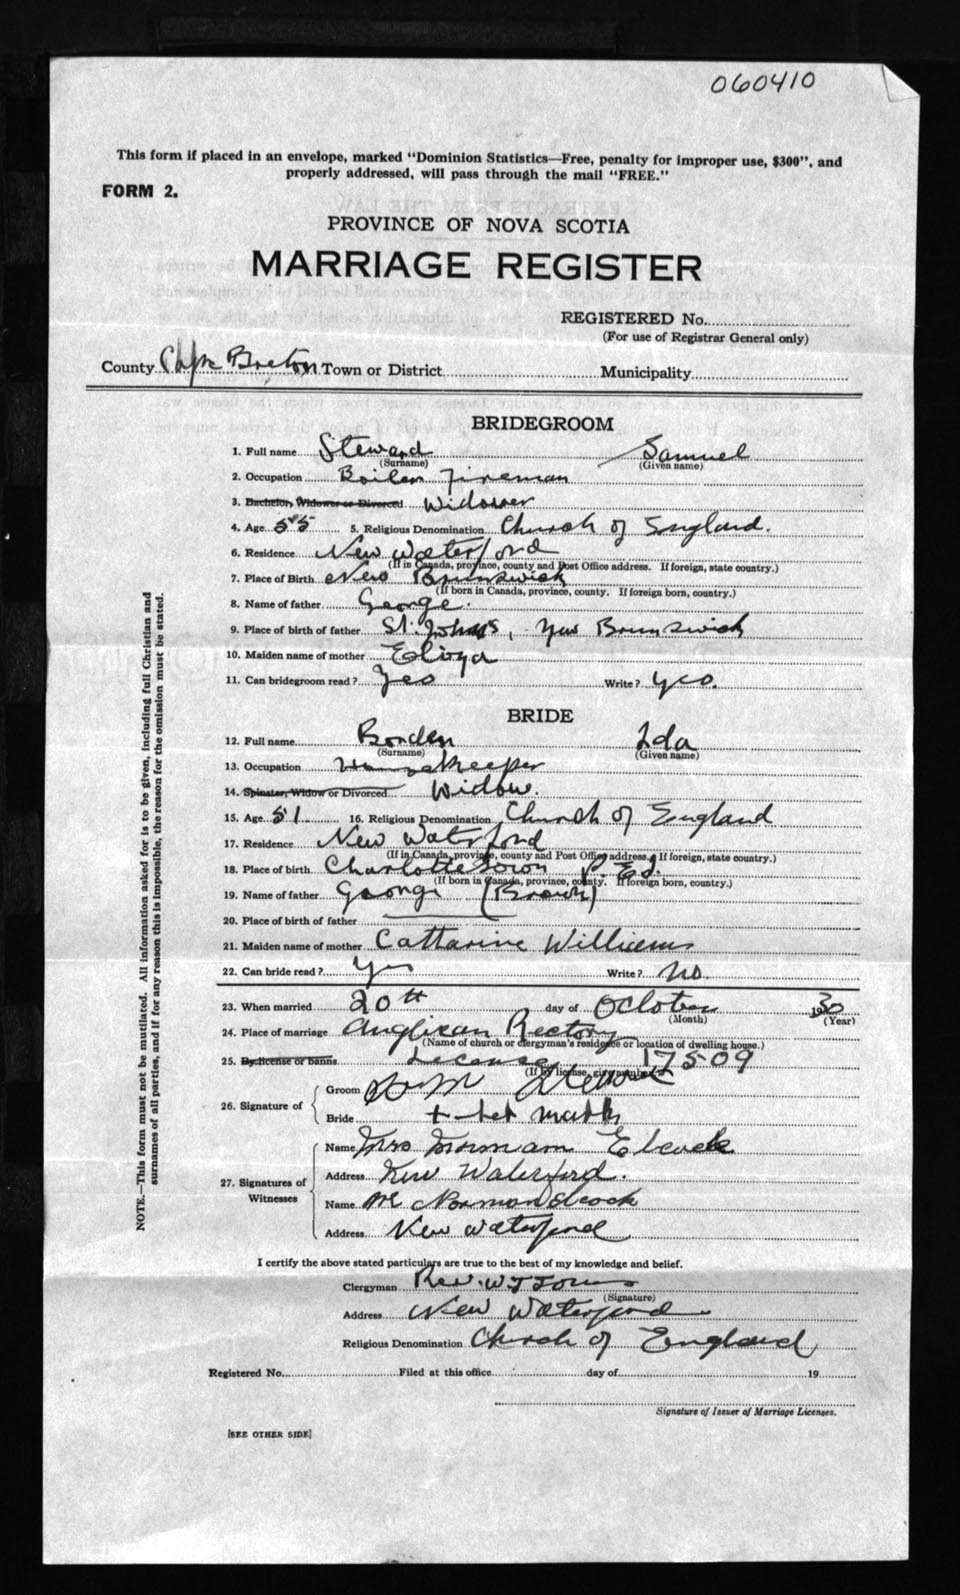 060410
This form if placed in an envelope, marked "Dominion Statistics—Free, penalty for improper use, $300", and
properly addressed, will pass through the mail "FREE."
FORM 2.
PROVINCE OF NOVA SCOTIA
MARRIAGE REGISTER
REGISTERED No.
(For use of Registrar General only)
County Cape Breton Town or District Municipality
BRIDEGROOM
1. Full name Steward Samuel
(Surname) (Given name)
2. Occupation Boiler Fireman
3. Bachelor, Widower or Divorced Widower
4. Age 55 5. Religious Denomination Church of England.
6. Residence New Waterford
(If in Canada, province, county and Post Office address. If foreign, state country.)
7. Place of Birth New Brunswick
(If born in Canada, province, county. If foreign born, country.)
8. Name of father George.
9. Place of birth of father St. Johns, New Brunswick
10. Maiden name of mother
11. Can bridegroom read? Yes Write? Yes.
BRIDE
12. Full name Borden Ida
(Surname) (Given name)
13. Occupation Housekeeper
14. Spinster, Widow or Divorced Widow.
15. Age 51 16. Religious Denomination Church of England
17. Residence New Waterford
(If in Canada, province, county and Post Office address. If foreign, state country.)
18. Place of birth Charlottetown P.E.I.
(If born in Canada, province, county. If foreign born, country.)
19. Name of father George (Brown)
20. Place of birth of father
21. Maiden name of mother Cattarine Williams
22. Can bride read? Yes Write? No.
23. When married 20th day of October 1930
(Month) (Year)
24. Place of marriage Anglican Rectory
(Name of church or clergyman's residence or location of dwelling house.)
25. By license or banns License 17509
(If by license, give number)
26. Signature of
Groom
Bride + her mark
27. Signatures of Witnesses
Name Mrs Norman Elcock
Address New Waterford.
Name Mr Norman Elcock
Address New Waterford
I certify the above stated particulars are true to the best of my knowledge and belief.
Clergyman Rev. W J
(Signature)
Address New Waterford
Religious Denomination Church of England
Registered No. Filed at this office day of 19
Signature of Issuer of Marriage Licenses.
[SEE OTHER SIDE]
NOTE.—This form must not be mutilated. All information asked for is to be given, including full Christian and
surnames of all parties, and if for any reason this is impossible, the reason for the omission must be stated.